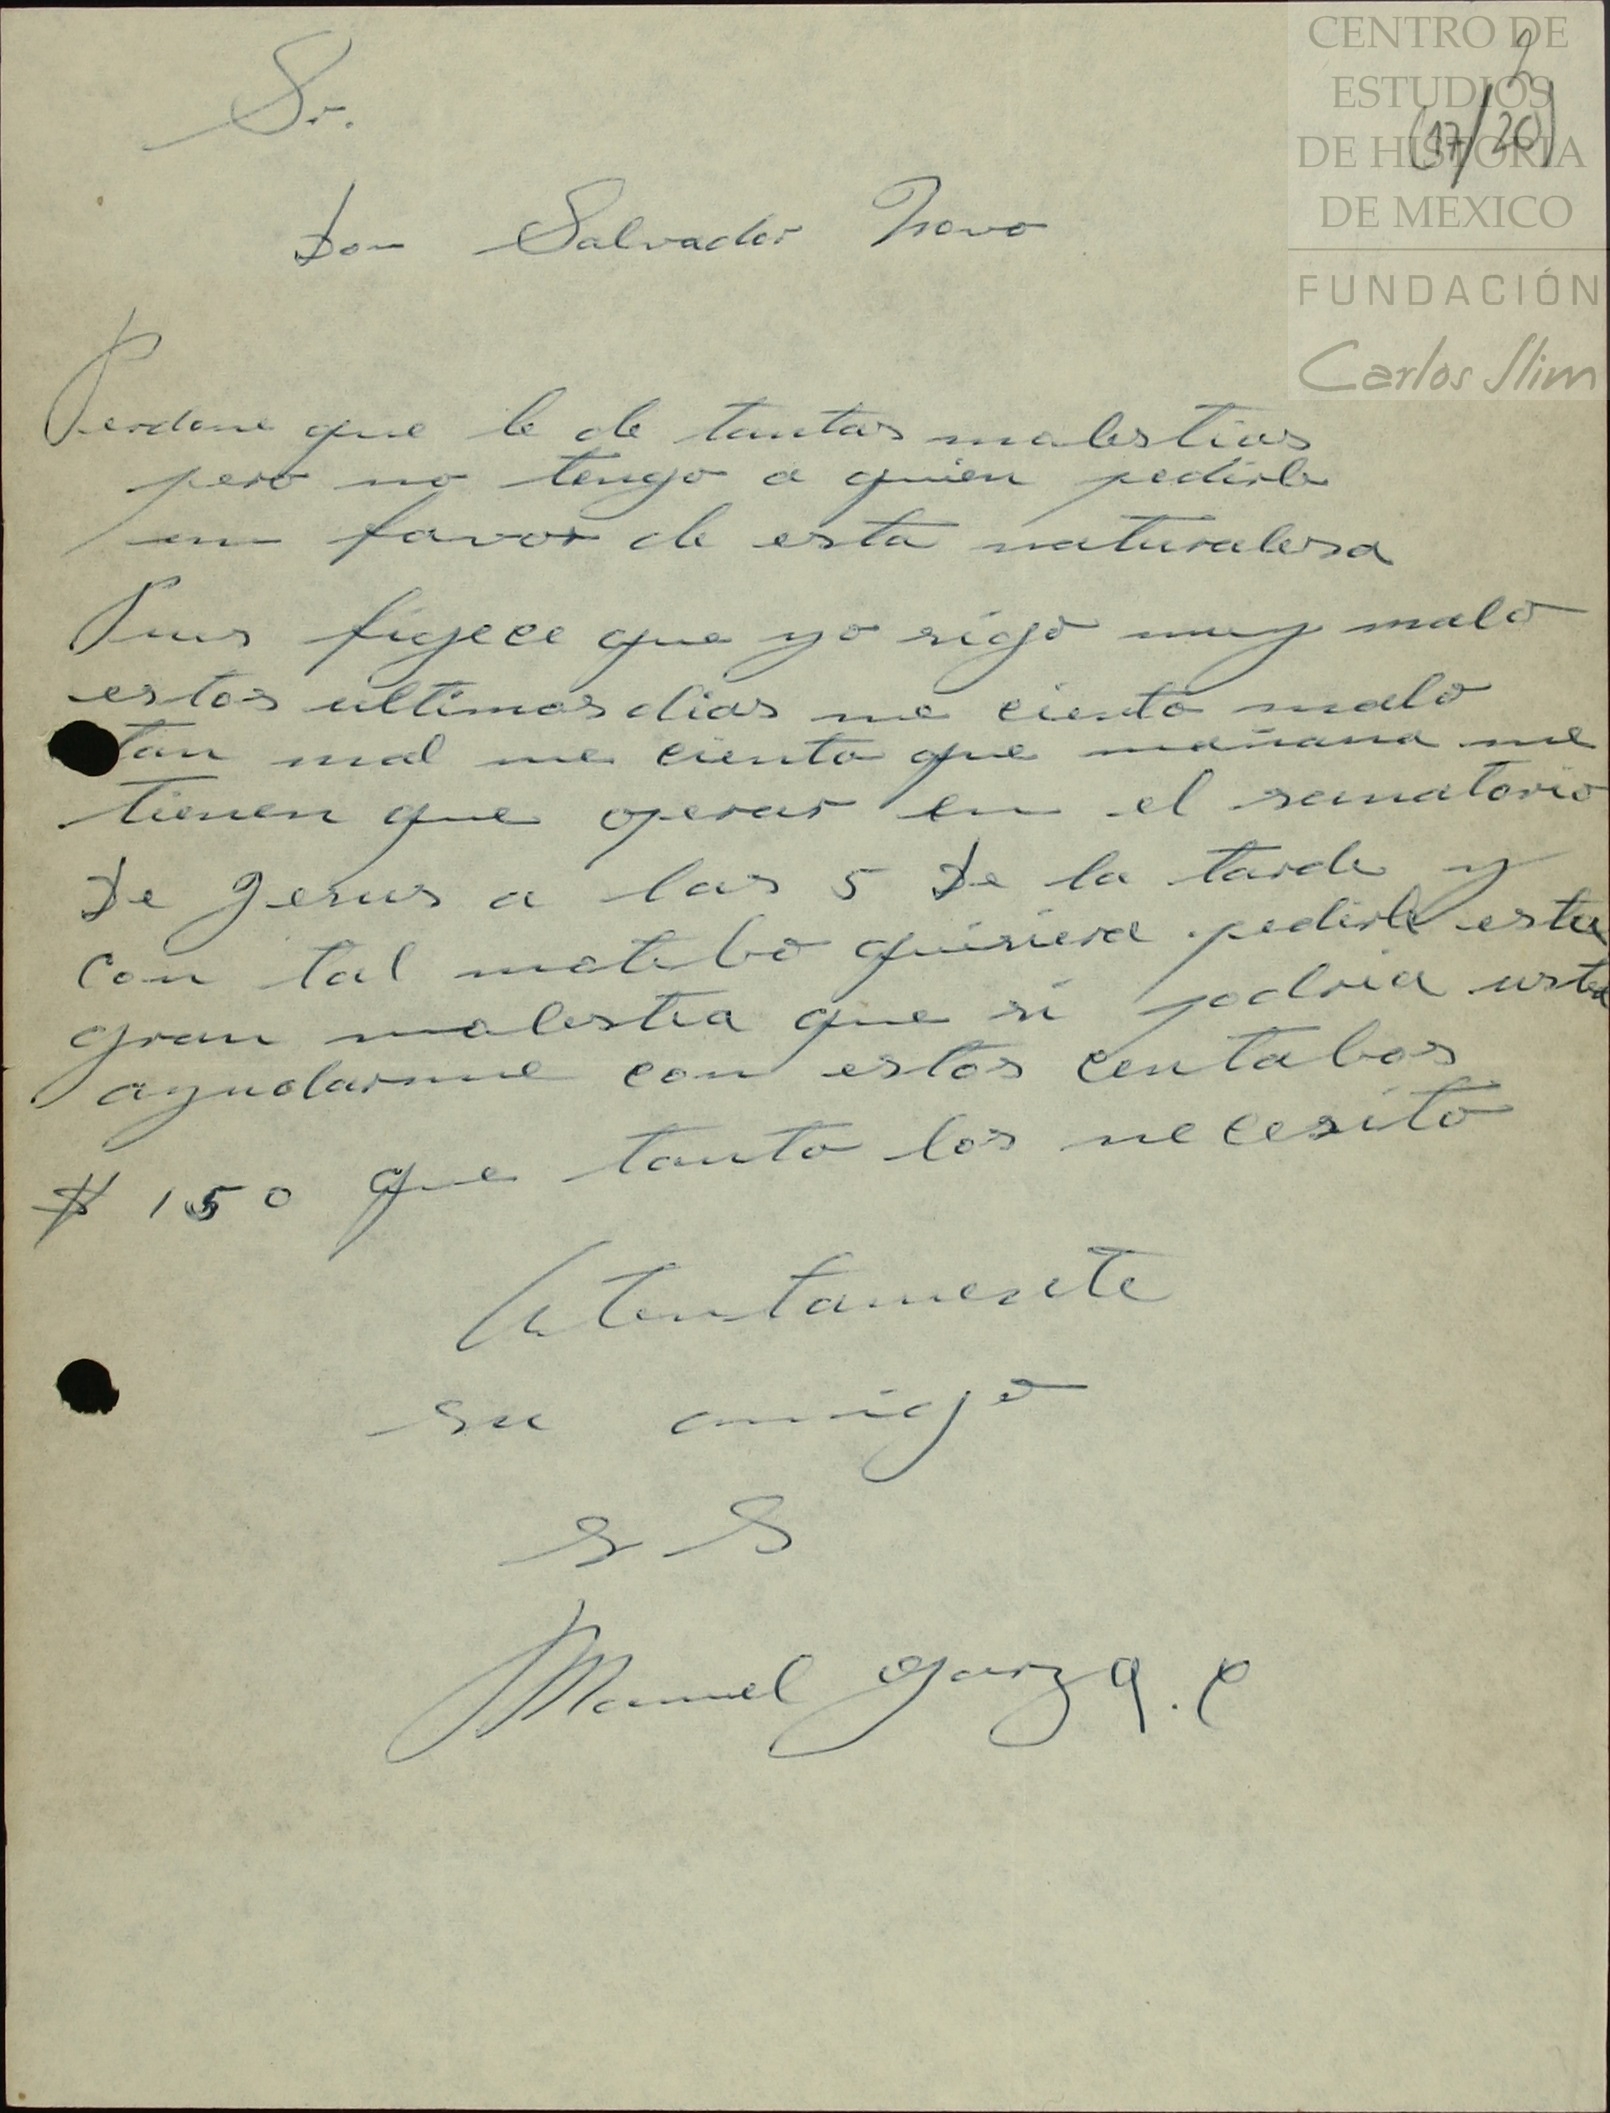 CENTRO DE
ESTUDIOS
DE HISTORIA
DE MEXICO
FUNDACIÓN
Carlos Slim
2
(17/20)
Sr.
Don Salvador Novo
Perdone que le de tantas molestias
pero no tengo a quien pedirle
un favor de esta naturalesa
Pues figece que yo sigo muy malo
estos ultimos dias me ciento malo
tan mal me ciento que mañana me
tienen que operar en el sanatorio
De Jesus a las 5 De la tarde y
con tal motibo quisiera pedirle esta
gran molestia que si podria usted
ayudarme con estos centabos
$ 150 que tanto los necesito
Atentamente
su amigo
S S
Manuel Garza. C